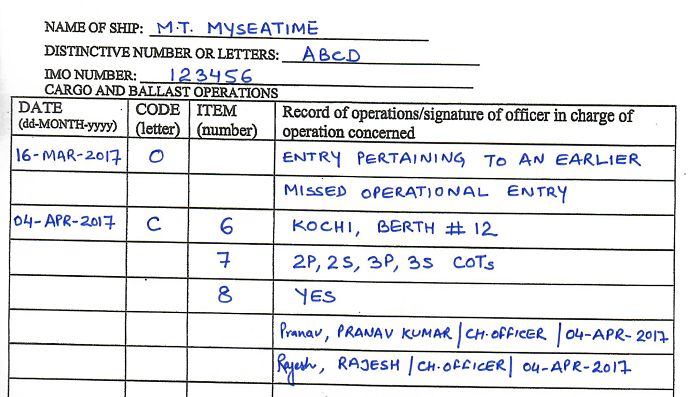 NAME OF SHIP: M.T. MYSEATIME
DISTINCTIVE NUMBER OR LETTERS: ABCD
IMO NUMBER: 123456
CARGO AND BALLAST OPERATIONS
DATE (dd-MONTH-yyyy) CODE (letter) ITEM (number) Record of operations/signature of officer in charge of operation concerned
16-MAR-2017 O ENTRY PERTAINING TO AN EARLIER
MISSED OPERATIONAL ENTRY
04-APR-2017 C 6 KOCHI, BERTH # 12
7 2P, 2S, 3P, 3S COTs
8 YES
Pranav, PRANAV KUMAR | CH.OFFICER | 04-APR-2017
Rajesh, RAJESH | CH.OFFICER | 04-APR-2017